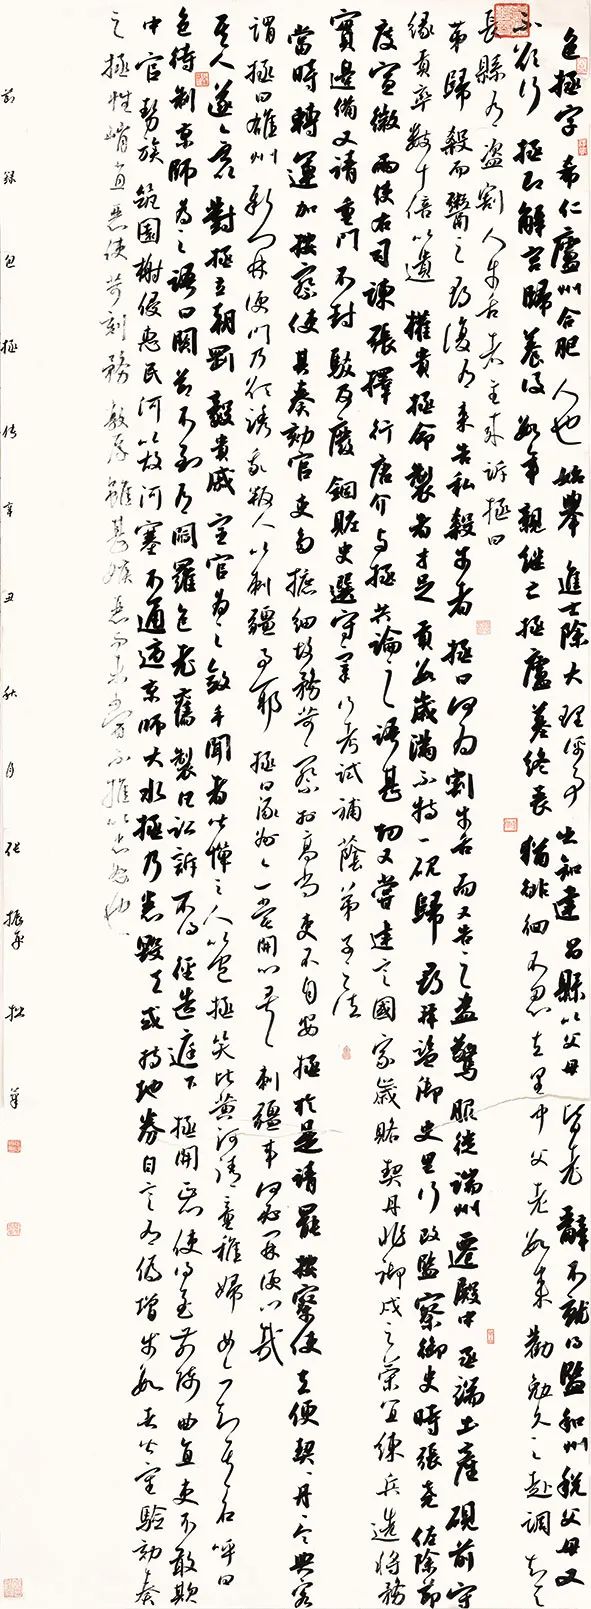 包拯字希仁廬州合肥人也始舉進士除大理評事出知建昌縣以父母皆老辭不就得監和州稅父母又
不欲行拯即解官歸養後數年親繼亡拯廬墓終喪猶徘徊不忍去里中父老數來勸勉久之赴調知天
長縣有盜割人牛舌者主來訴拯曰
第歸殺而鬻之尋復有來告私殺牛者拯曰何為割牛舌而又告之盜驚服徙端州遷殿中丞端土產硯前守
緣貢率數十倍以遺權貴拯命製者才足貢數歲滿不持一硯歸尋拜監御史里行改監察御史時張堯佐除節
度宣徽兩使右司諫張擇行唐介與拯共論之語甚切又嘗建言國家歲賂契丹非御戎之策宜練兵選將務
實邊備又請重門下封駁及廢錮贓吏選守宰行考試補蔭弟子之法
當時轉運加按察使其奏劾官吏多摭細故務苛察相高尚吏不自安拯於是請罷按察使去使契丹令典客
謂拯曰雄州新開便門乃欲誘我叛人以刺疆事耶拯曰涿州亦嘗開門矣刺疆事何必開便門哉
其人遂無言對拯立朝剛毅貴戚宦官為之斂手聞者皆憚之人以包拯笑比黃河清童稚婦女亦知其名呼曰
包待制京師為之語曰關節不到有閻羅包老舊製凡訟訴不得徑造庭下拯開正門使得至前陳曲直吏不敢欺
中官勢族築園榭侵惠民河以故河塞不通適京師大水拯乃悉毀去或持地券自言有偽增步數者皆審驗劾奏
之拯性峭直惡吏苛刻務敦厚雖甚嫉惡而未嘗不推以忠恕也
錄包拯傳辛丑秋月張振